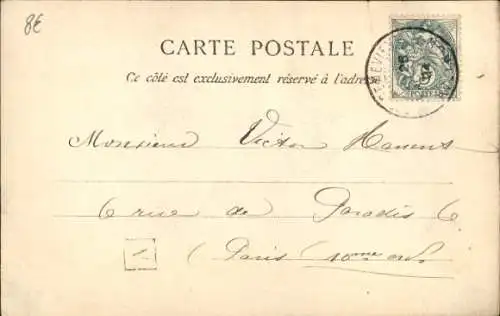 8€
CARTE POSTALE
Ce côté est exclusivement réservé à l'adresse
Monsieur Victor
6 rue de Paradis 6
1
(Paris 10me ardt